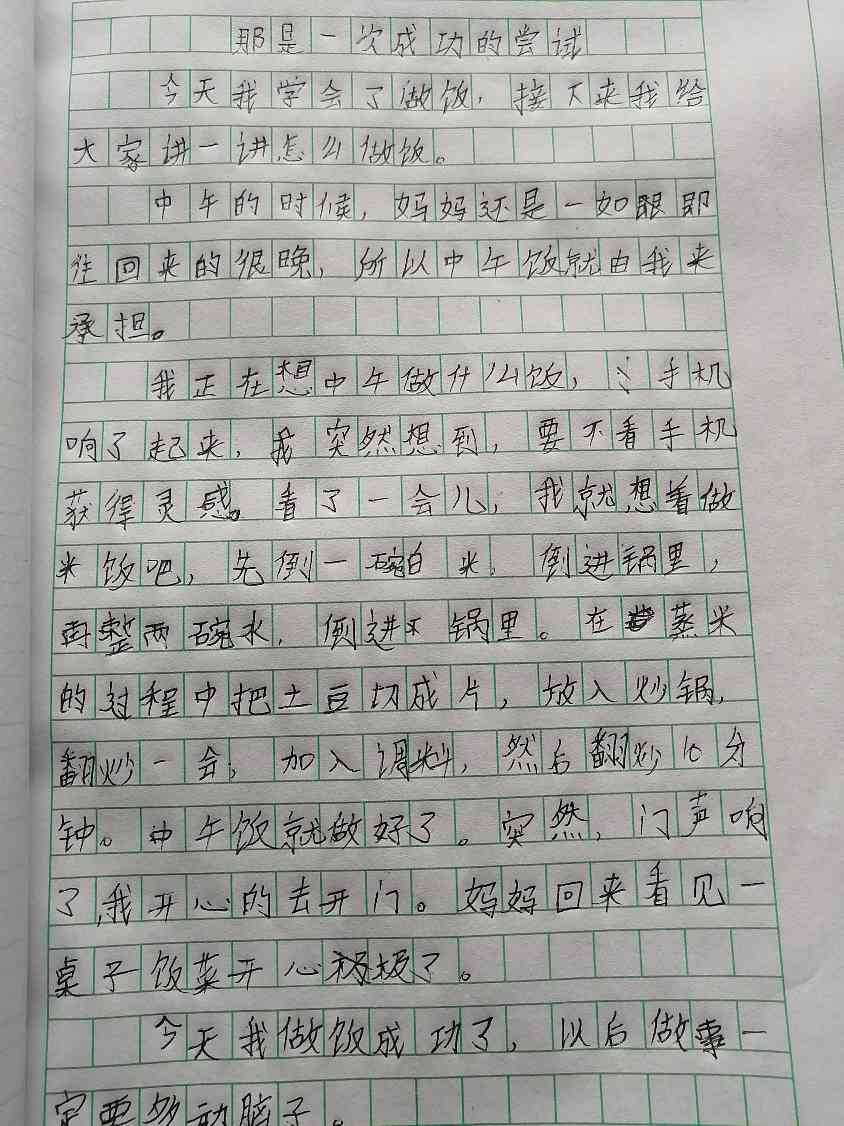 那是一次成功的尝试
今天我学会了做饭，接下来我给
大家讲一讲怎么做饭。
中午的时候，妈妈还是一如跟即
往回来的很晚，所以中午饭就由我来
承担。
我正在想中午做什么饭，手机
响了起来，我突然想到，要不看手机
获得灵感。看了一会儿，我就想着做
米饭吧，先倒一碗白米，倒进锅里，
再整两碗水，倒进锅里。在蒸米
的过程中把土豆切成片，放入炒锅，
翻炒一会，加入调料，然后翻炒10分
钟。中午饭就做好了。突然，门声响
了，我开心的去开门。妈妈回来看见一
桌子饭菜开心极了。
今天我做饭成功了，以后做事一
定要多动脑子。